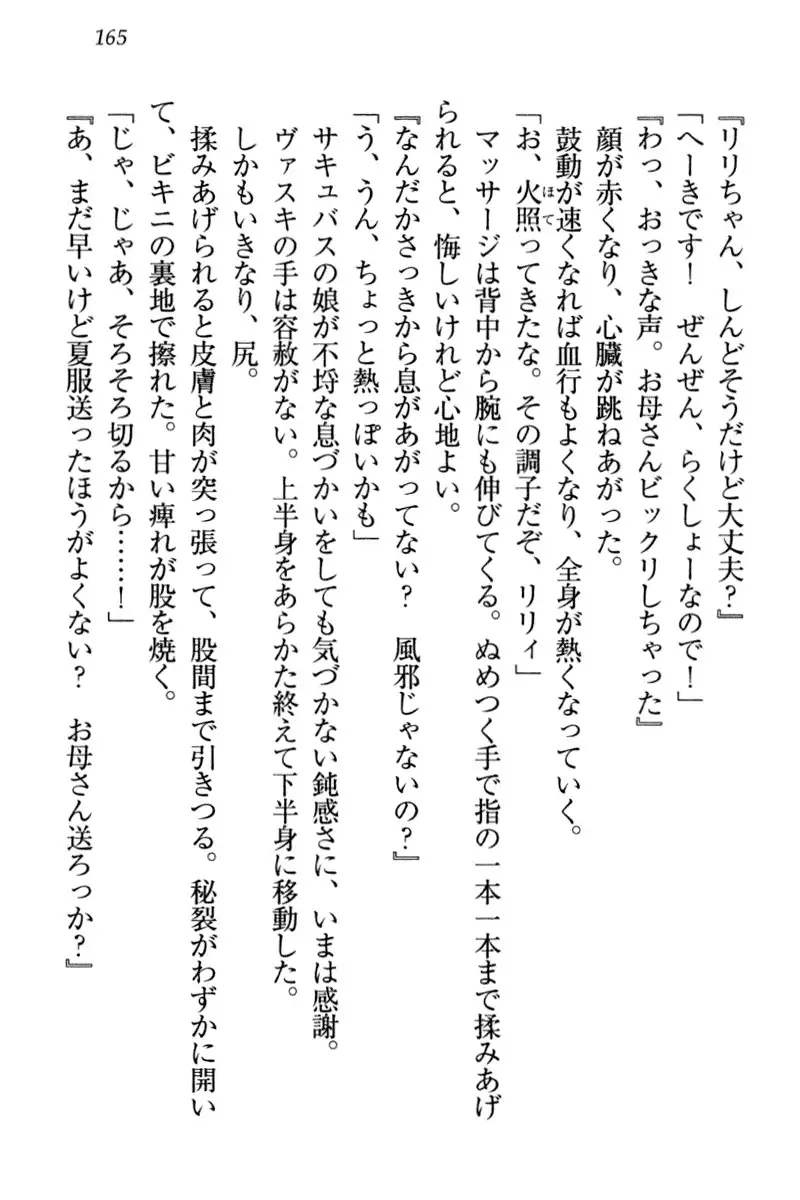 165
『リリちゃん、しんどそうだけど大丈夫?』
「へーきです!　ぜんぜん、らくしょーなので!」
『わっ、おっきな声。お母さんビックリしちゃった』
顔が赤くなり、心臓が跳ねあがった。
鼓動が速くなれば血行もよくなり、全身が熱くなっていく。
「お、火照ってきたな。その調子だぞ、リリィ」
マッサージは背中から腕にも伸びてくる。ぬめつく手で指の一本一本まで揉みあげ
られると、悔しいけれど心地よい。
『なんだかさっきから息があがってない?　風邪じゃないの?』
「う、うん、ちょっと熱っぽいかも」
サキュバスの娘が不埒な息づかいをしても気づかない鈍感さに、いまは感謝。
ヴァスキの手は容赦がない。上半身をあらかた終えて下半身に移動した。
しかもいきなり、尻。
揉みあげられると皮膚と肉が突っ張って、股間まで引きつる。秘裂がわずかに開い
て、ビキニの裏地で擦れた。甘い痺れが股を焼く。
「じゃ、じゃあ、そろそろ切るから……!」
『あ、まだ早いけど夏服送ったほうがよくない?　お母さん送ろっか?』